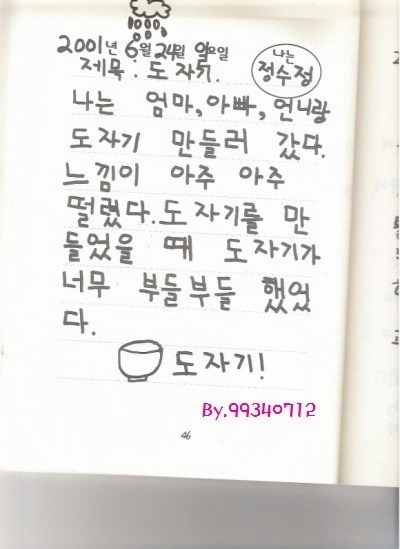 2001년 6월 24일 일요일
나는
정수정
제목 : 도자기.
나는 엄마, 아빠, 언니랑
도자기 만들러 갔다.
느낌이 아주 아주
떨렸다. 도자기를 만
들었을 때 도자기가
너무 부들부들 했었
다.
도자기!
By.99340712
46